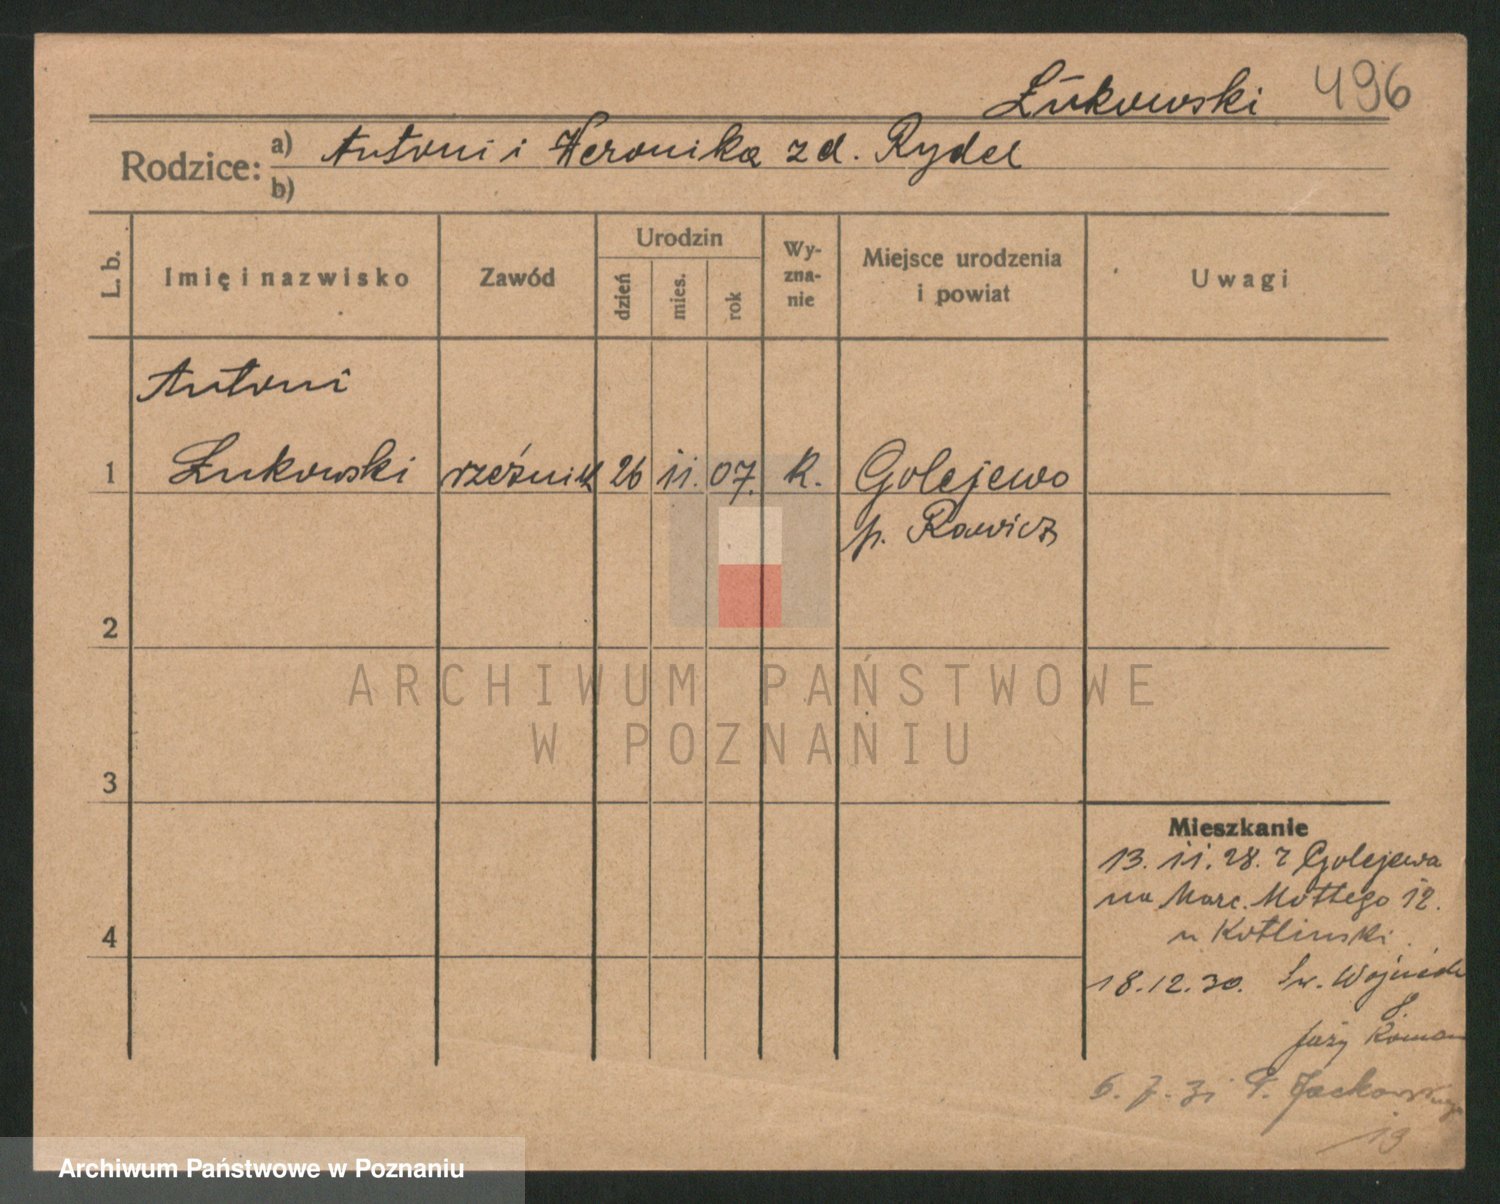 Łukowski 496
Rodzice: a) Antoni i Weronika zd. Rydel
b)
L. b.
Imię i nazwisko
Zawód
Urodzin
dzień
mies.
rok
Wy-
zna-
nie
Miejsce urodzenia
i powiat
Uwagi
Antoni
1 Łukowski rzeźnik 26 11. 07. K. Golejewo
p. Rawicz
2
ARCHIWUM PAŃSTWOWE
W POZNANIU
3
Mieszkanie
13. 11. 28. z Golejewa
na Marc. Mottego 12.
u Kotlinski
4
18.12.30. Św. Wojciech
8
6. 7. 31 P. Jackowskiego
13
Archiwum Państwowe w Poznaniu